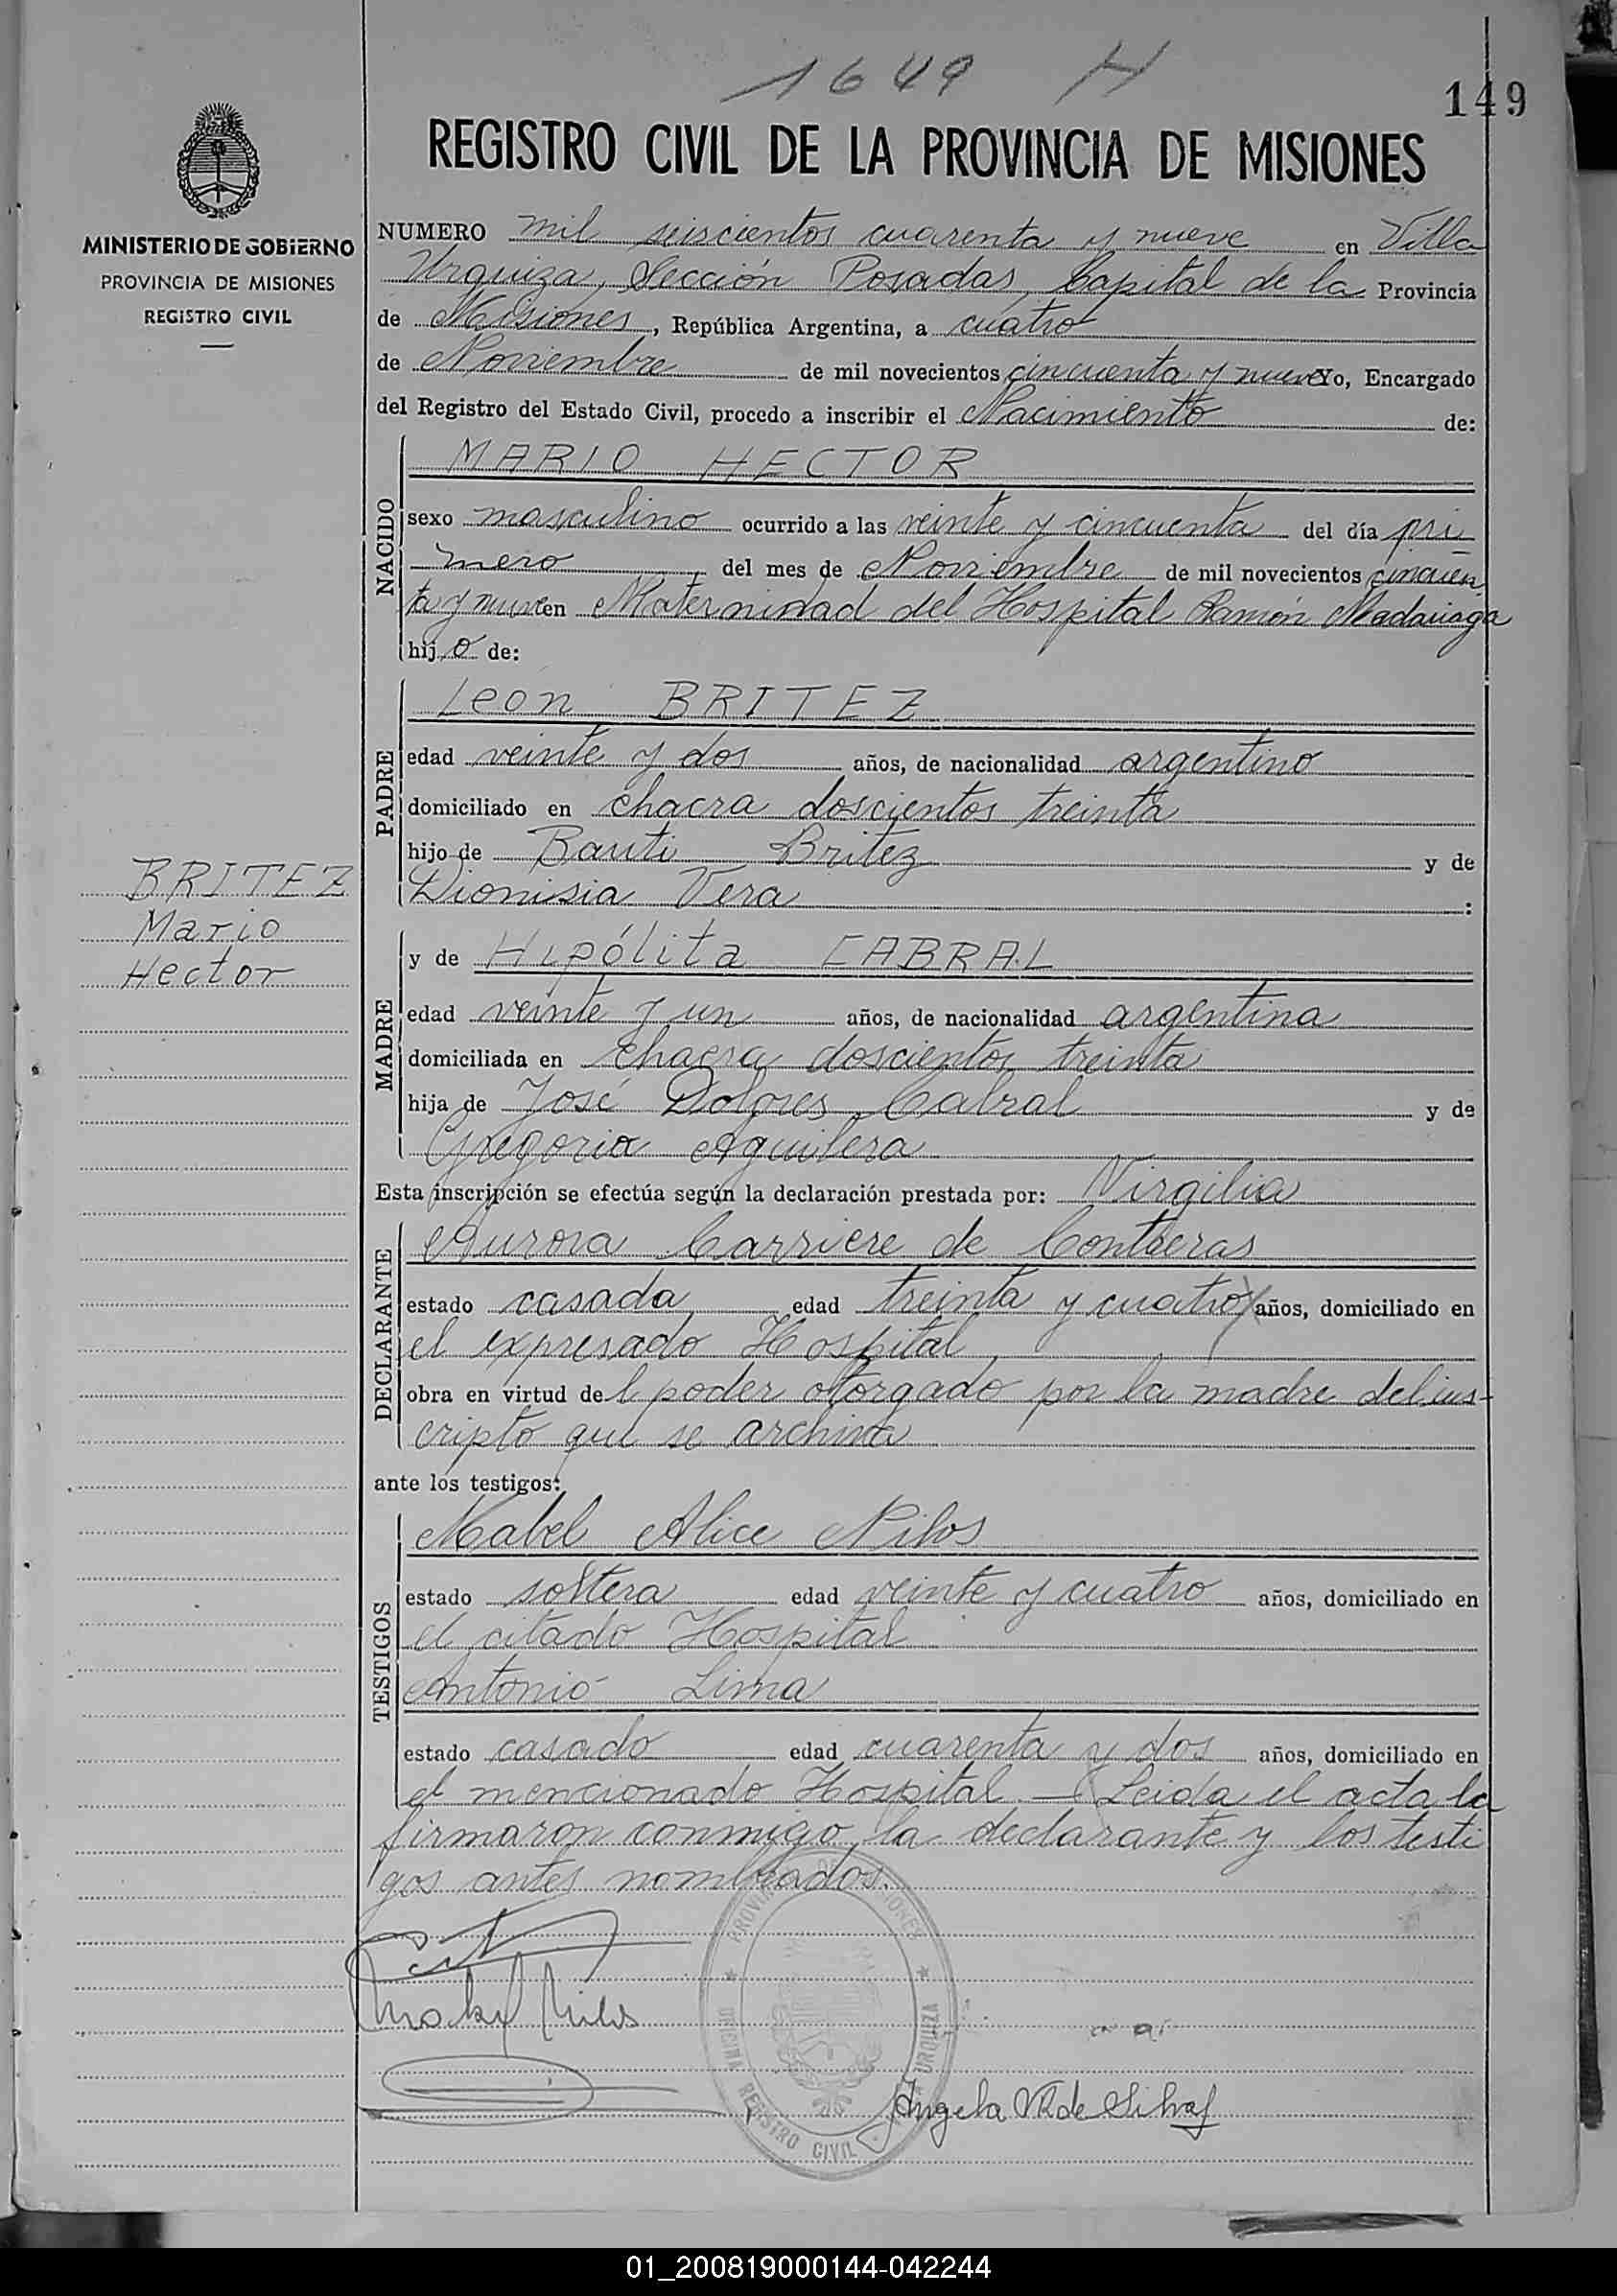 1649 H
149
REGISTRO CIVIL DE LA PROVINCIA DE MISIONES
MINISTERIO DE GOBIERNO
PROVINCIA DE MISIONES
REGISTRO CIVIL
NUMERO mil seiscientos cuarenta y nueve en Villa
Urquiza, Sección Posadas, Capital de la Provincia
de Misiones, República Argentina, a cuatro
de Noviembre de mil novecientos cincuenta y nueve Yo, Encargado
del Registro del Estado Civil, procedo a inscribir el Nacimiento de:
NACIDO
MARIO HECTOR
sexo masculino ocurrido a las veinte y cincuenta del día pri
mero del mes de Noviembre de mil novecientos cincuen
ta y nueve en Maternidad del Hospital Ramón Madariaga
hijo de:
PADRE
Leon BRITEZ
edad veinte y dos años, de nacionalidad argentino
domiciliado en chacra doscientos treinta
hijo de Bauti Britez y de
Dionisia Vera :
BRITEZ
Mario
Hector
MADRE
y de Hipólita CABRAL
edad veinte y un años, de nacionalidad argentina
domiciliada en chacra doscientos treinta
hija de José Dolores Cabral y de
Gregoria Aguilera
Esta inscripción se efectúa según la declaración prestada por: Virgilia
DECLARANTE
Aurora Carriere de Contreras
estado casada edad treinta y cuatro años, domiciliado en
el expresado Hospital,
obra en virtud del poder otorgado por la madre del ins-
cripto que se archiva
ante los testigos:
TESTIGOS
Mabel Alice Nilos
estado soltera edad veinte y cuatro años, domiciliado en
el citado Hospital
Antonio Lima
estado casado edad cuarenta y dos años, domiciliado en
el mencionado Hospital. - Leida el acta la
firmaron conmigo, la declarante y los testi
gos antes nombrados.
PROVINCIA DE MISIONES
OFICINA REGISTRO CIVIL URQUIZA
Mabel Nilos
Angela V. de Silva
01_200819000144-042244